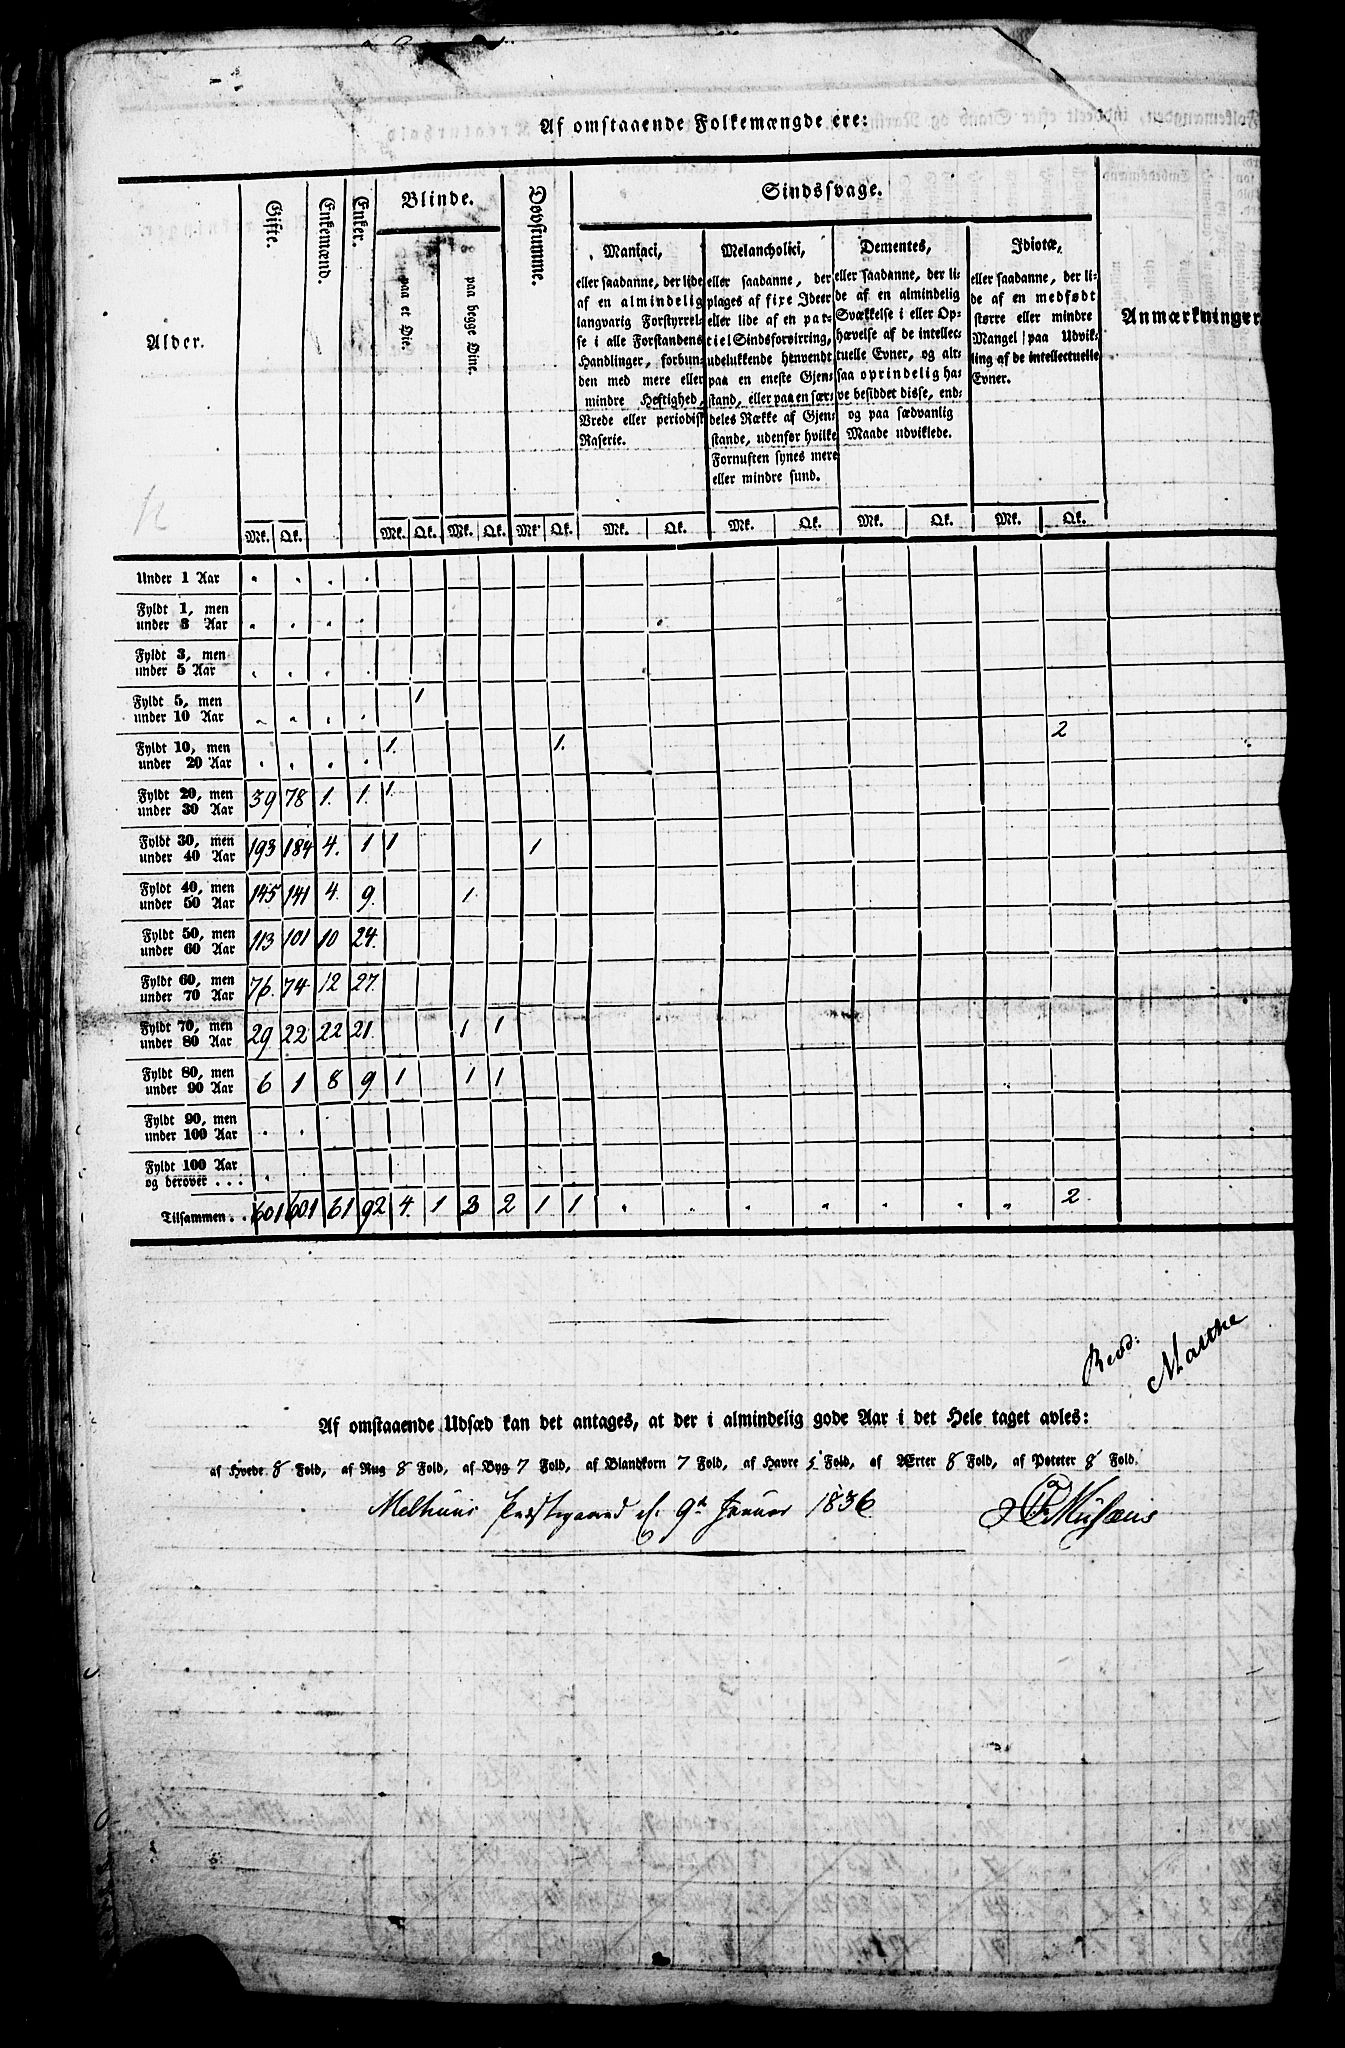 Af omstaaende Folkemængde ere:
Alder.
Gifte.
Enkemænd.
Enker.
Blinde.
paa et Øie.
paa begge Øine.
Døvstumme.
Sindssvage.
Maniaci,
eller saadanne, der lide
af en almindelig
langvarig Forstyrrel-
se i alle Forstandens
Handlinger, forbun-
den med mere eller
mindre Heftighed,
Vrede eller periodisk
Raserie.
Melancholici,
eller saadanne, der
plages af fixe Ideer
eller lide af en par-
tiel Sindsforvirring,
udelukkende henvendt
paa en eneste Gjen-
stand, eller paa en sær-
deles Række af Gjen-
stande, udenfor hvilke
Fornuften synes mere
eller mindre sund.
Dementes,
eller saadanne, der li-
de af en almindelig
Svækkelse i eller Op-
hævelse af de intellec-
tuelle Evner, og alt-
saa oprindelig ha-
ve besiddet disse, end-
og paa sædvanlig
Maade udviklede.
Idiotæ,
eller saadanne, der li-
de af en medfødt
større eller mindre
Mangel paa Udvik-
ling af de intellectuelle
Evner.
Anmærkninger
Mk. Qk. Mk. Qk. Mk. Qk. Mk. Qk. Mk. Qk. Mk. Qk. Mk. Qk. Mk. Qk.
Under 1 Aar . . . .
Fyldt 1, men
under 3 Aar . . . .
Fyldt 3, men
under 5 Aar . . . .
Fyldt 5, men 1
under 10 Aar . . . .
Fyldt 10, men 1. 1. 2
under 20 Aar . . . .
Fyldt 20, men
under 30 Aar 39 78 1. 1. 1.
Fyldt 30, men
under 40 Aar 193 184 4. 1 1 1
Fyldt 40, men
under 50 Aar 145 141 4. 9. 1.
Fyldt 50, men
under 60 Aar 113 101 10 24.
Fyldt 60, men
under 70 Aar 76. 74 12 27.
Fyldt 70, men
under 80 Aar 29 22 22 21. 1 1
Fyldt 80, men
under 90 Aar 6 1 8 9 1 1 1
Fyldt 90, men
under 100 Aar . .
Fyldt 100 Aar
og derover . . .
Tilsammen. . 601 601 61 92 4. 1 3 2 1 1 „ „ „ „ „ „ „ 2.
Revd:
Malthe
Af omstaaende Udsæd kan det antages, at der i almindelig gode Aar i det Hele taget avles:
af Hvede 8 Fold, af Rug 8 Fold, af Byg 7 Fold, af Blandkorn 7 Fold, af Havre 5 Fold, af Ærter 8 Fold, af Poteter 8 Fold.
Melhuus Præstegaard d. 9d Januar 1836
Musæus